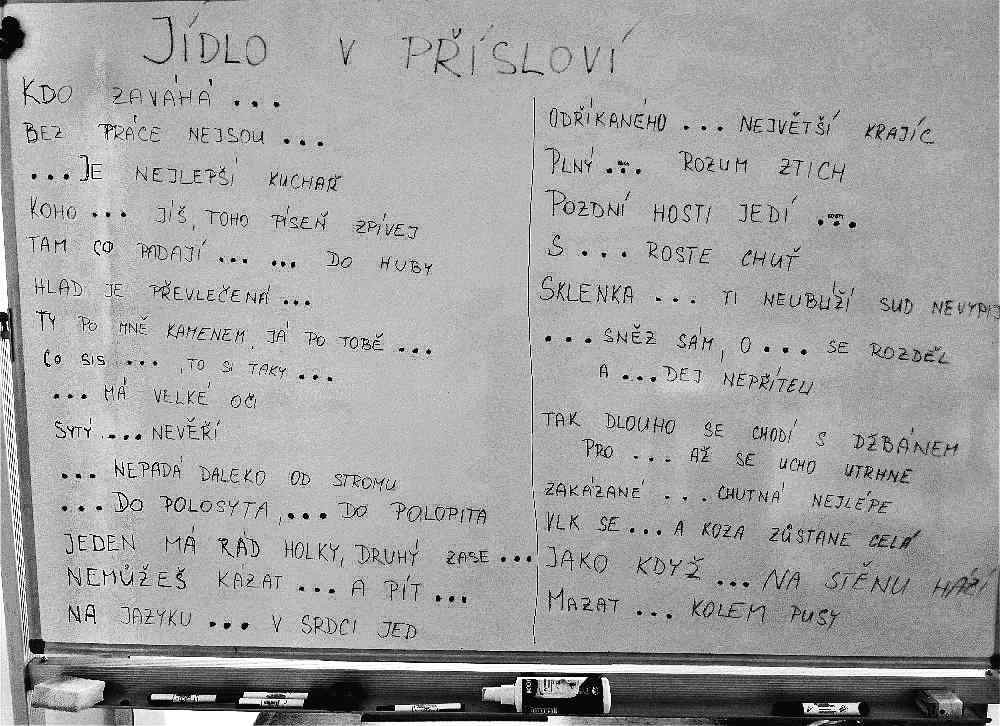 JÍDLO V PŘÍSLOVÍ
KDO ZAVÁHÁ ...
BEZ PRÁCE NEJSOU ...
... JE NEJLEPŠÍ KUCHAŘ
KOHO ... JÍŠ, TOHO PÍSEŇ ZPÍVEJ
TAM CO PADAJÍ ... ... DO HUBY
HLAD JE PŘEVLEČENÁ ...
TY PO MNĚ KAMENEM, JÁ PO TOBĚ ...
CO SIS ..., TO SI TAKY ...
... MÁ VELKÉ OČI
SYTÝ ... NEVĚŘÍ
... NEPADÁ DALEKO OD STROMU
... DO POLOSYTA, ... DO POLOPITA
JEDEN MÁ RÁD HOLKY, DRUHÝ ZASE ...
NEMŮŽEŠ KÁZAT ... A PÍT ...
NA JAZYKU ... V SRDCI JED
ODŘÍKANÉHO ... NEJVĚTŠÍ KRAJÍC
PLNÝ ... ROZUM ZTICH
POZDNÍ HOSTI JEDÍ ...
S ... ROSTE CHUŤ
SKLENKA ... TI NEUBLÍŽÍ SUD NEVYPIJ
... SNĚZ SÁM, O ... SE ROZDĚL
A ... DEJ NEPŘÍTELI
TAK DLOUHO SE CHODÍ S DŽBÁNEM
PRO ... AŽ SE UCHO UTRHNE
ZAKÁZANÉ ... CHUTNÁ NEJLÉPE
VLK SE ... A KOZA ZŮSTANE CELÁ
JAKO KDYŽ ... NA STĚNU HÁZÍ
MAZAT ... KOLEM PUSY